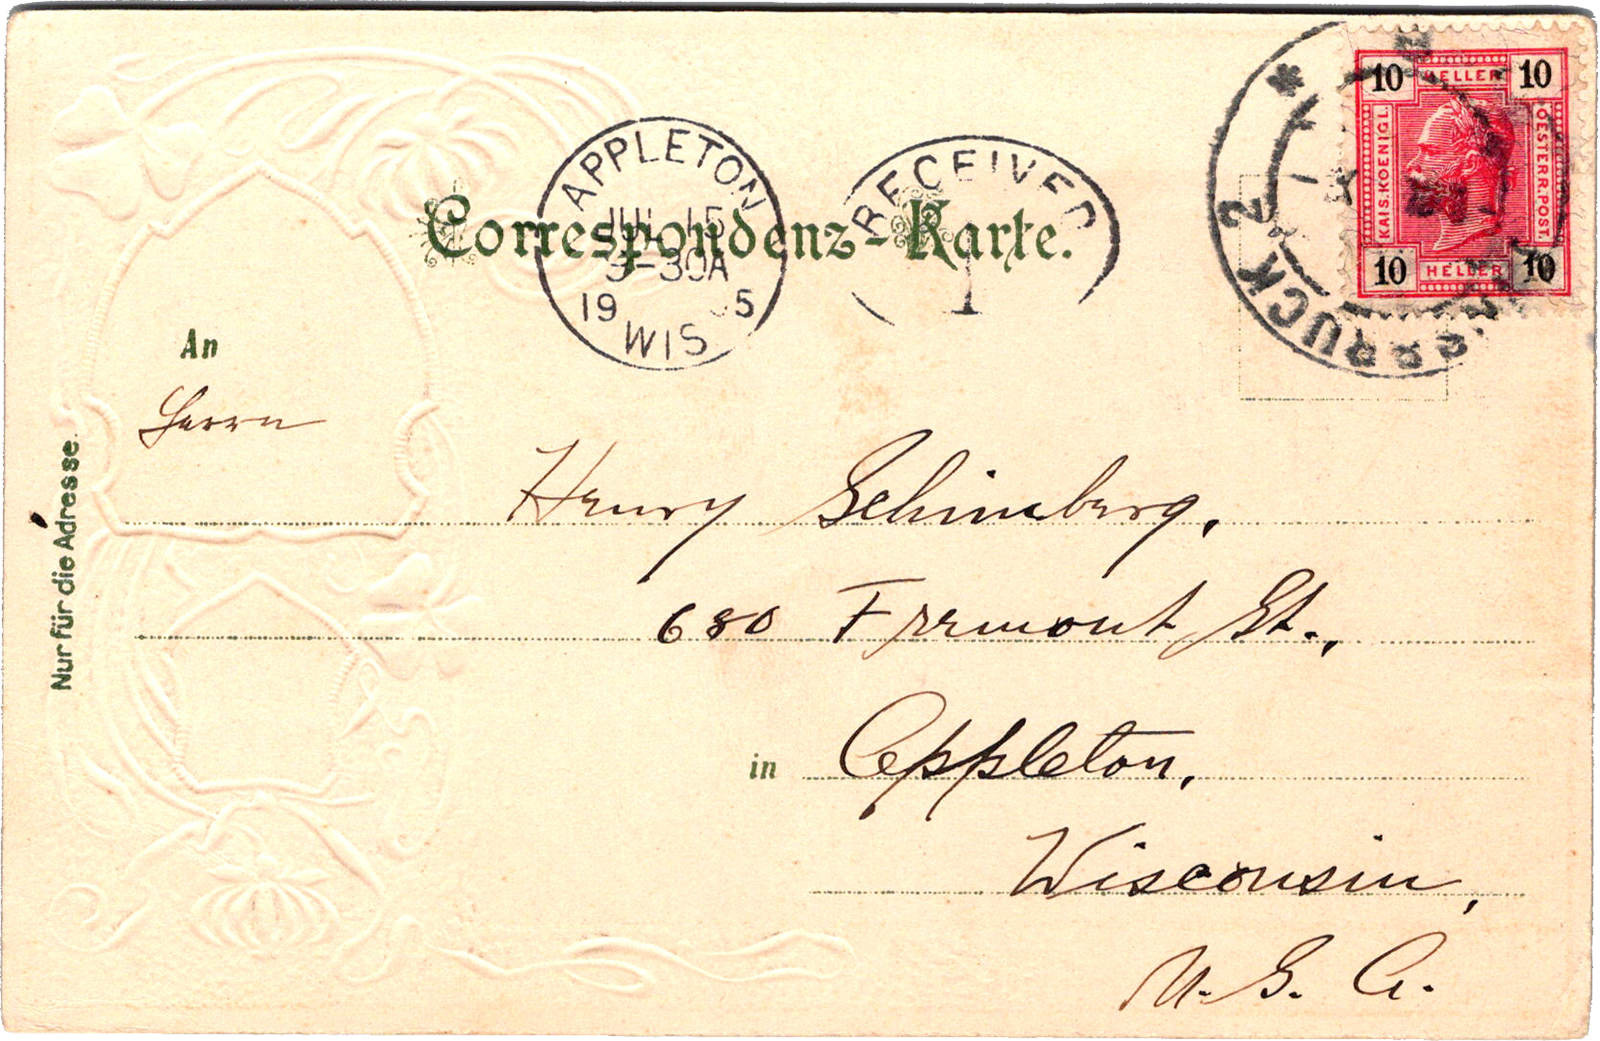 Correspondenz-Karte.
APPLETON
JUL 15
3-30A
19 5
WIS
RECEIVED
1
10 HELLER 10
KAIS. KOENIGL.
OESTERR. POST.
10 HELLER 10
INNSBRUCK 2
An
Herrn
Nur für die Adresse.
Henry Schimberg,
680 Fremont St.,
in Appleton,
Wisconsin,
U. S. A.